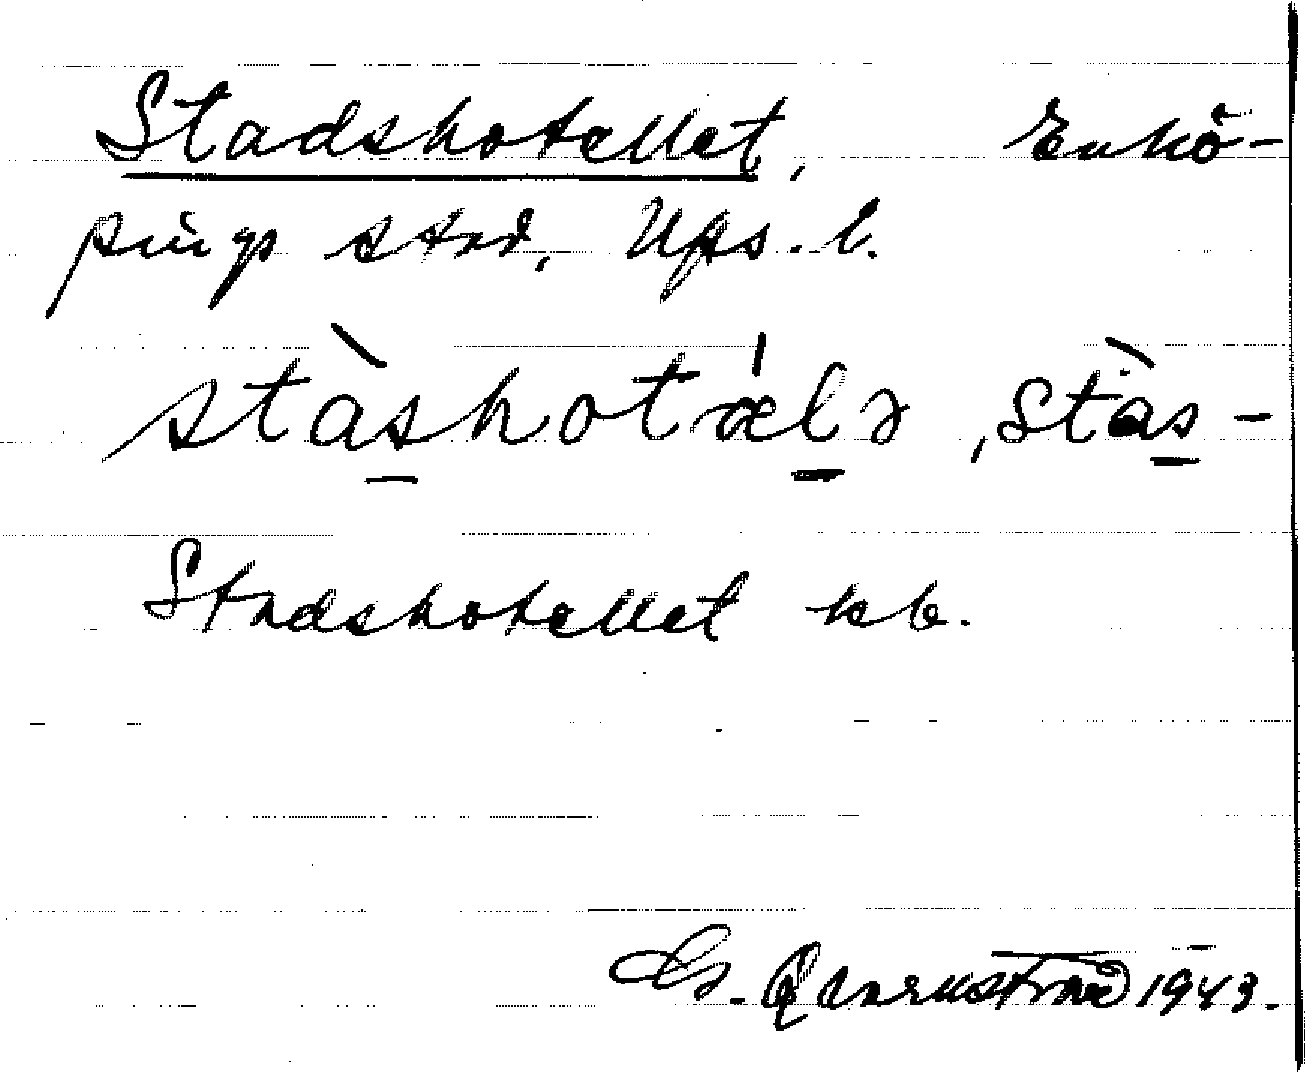 Stadshotellet, Enkö-
pings stad, Ups. l.
stàshotǽlə, stàs-
Stadshotellet kb.
G. Qvarnström 1943.